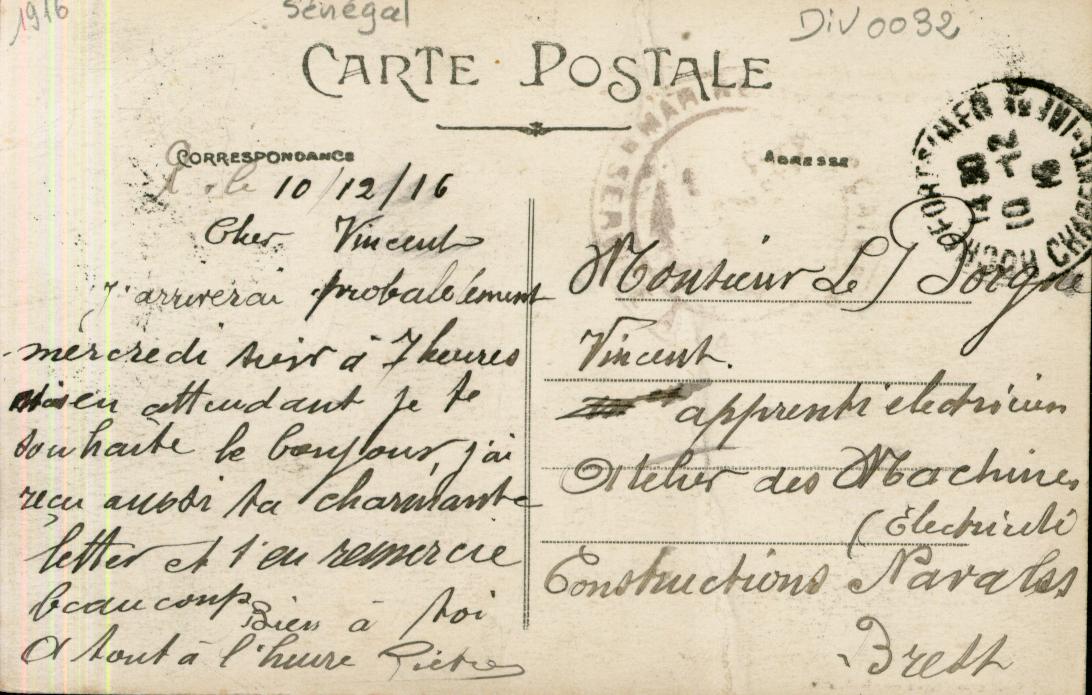 1916
Sénégal
Div 0032
CARTE POSTALE
CORRESPONDANCE
le 10/12/16
Cher Vincent
j'arriverai probablement
mercredi soir à 7 heures
en attendant je te
souhaite le bonjour, j'ai
reçu aussi ta charmante
letter et t'en remercie
beaucoup Bien à toi
A tout à l'heure Pierre
ADRESSE
ROCHEFORT-S-MER
CHARENTE-INF
14 30
10 -12
16
Monsieur Le Gorgne
Vincent.
apprenti electricien
Atelier des Machines
(Électricité
Constructions Navales
Brest